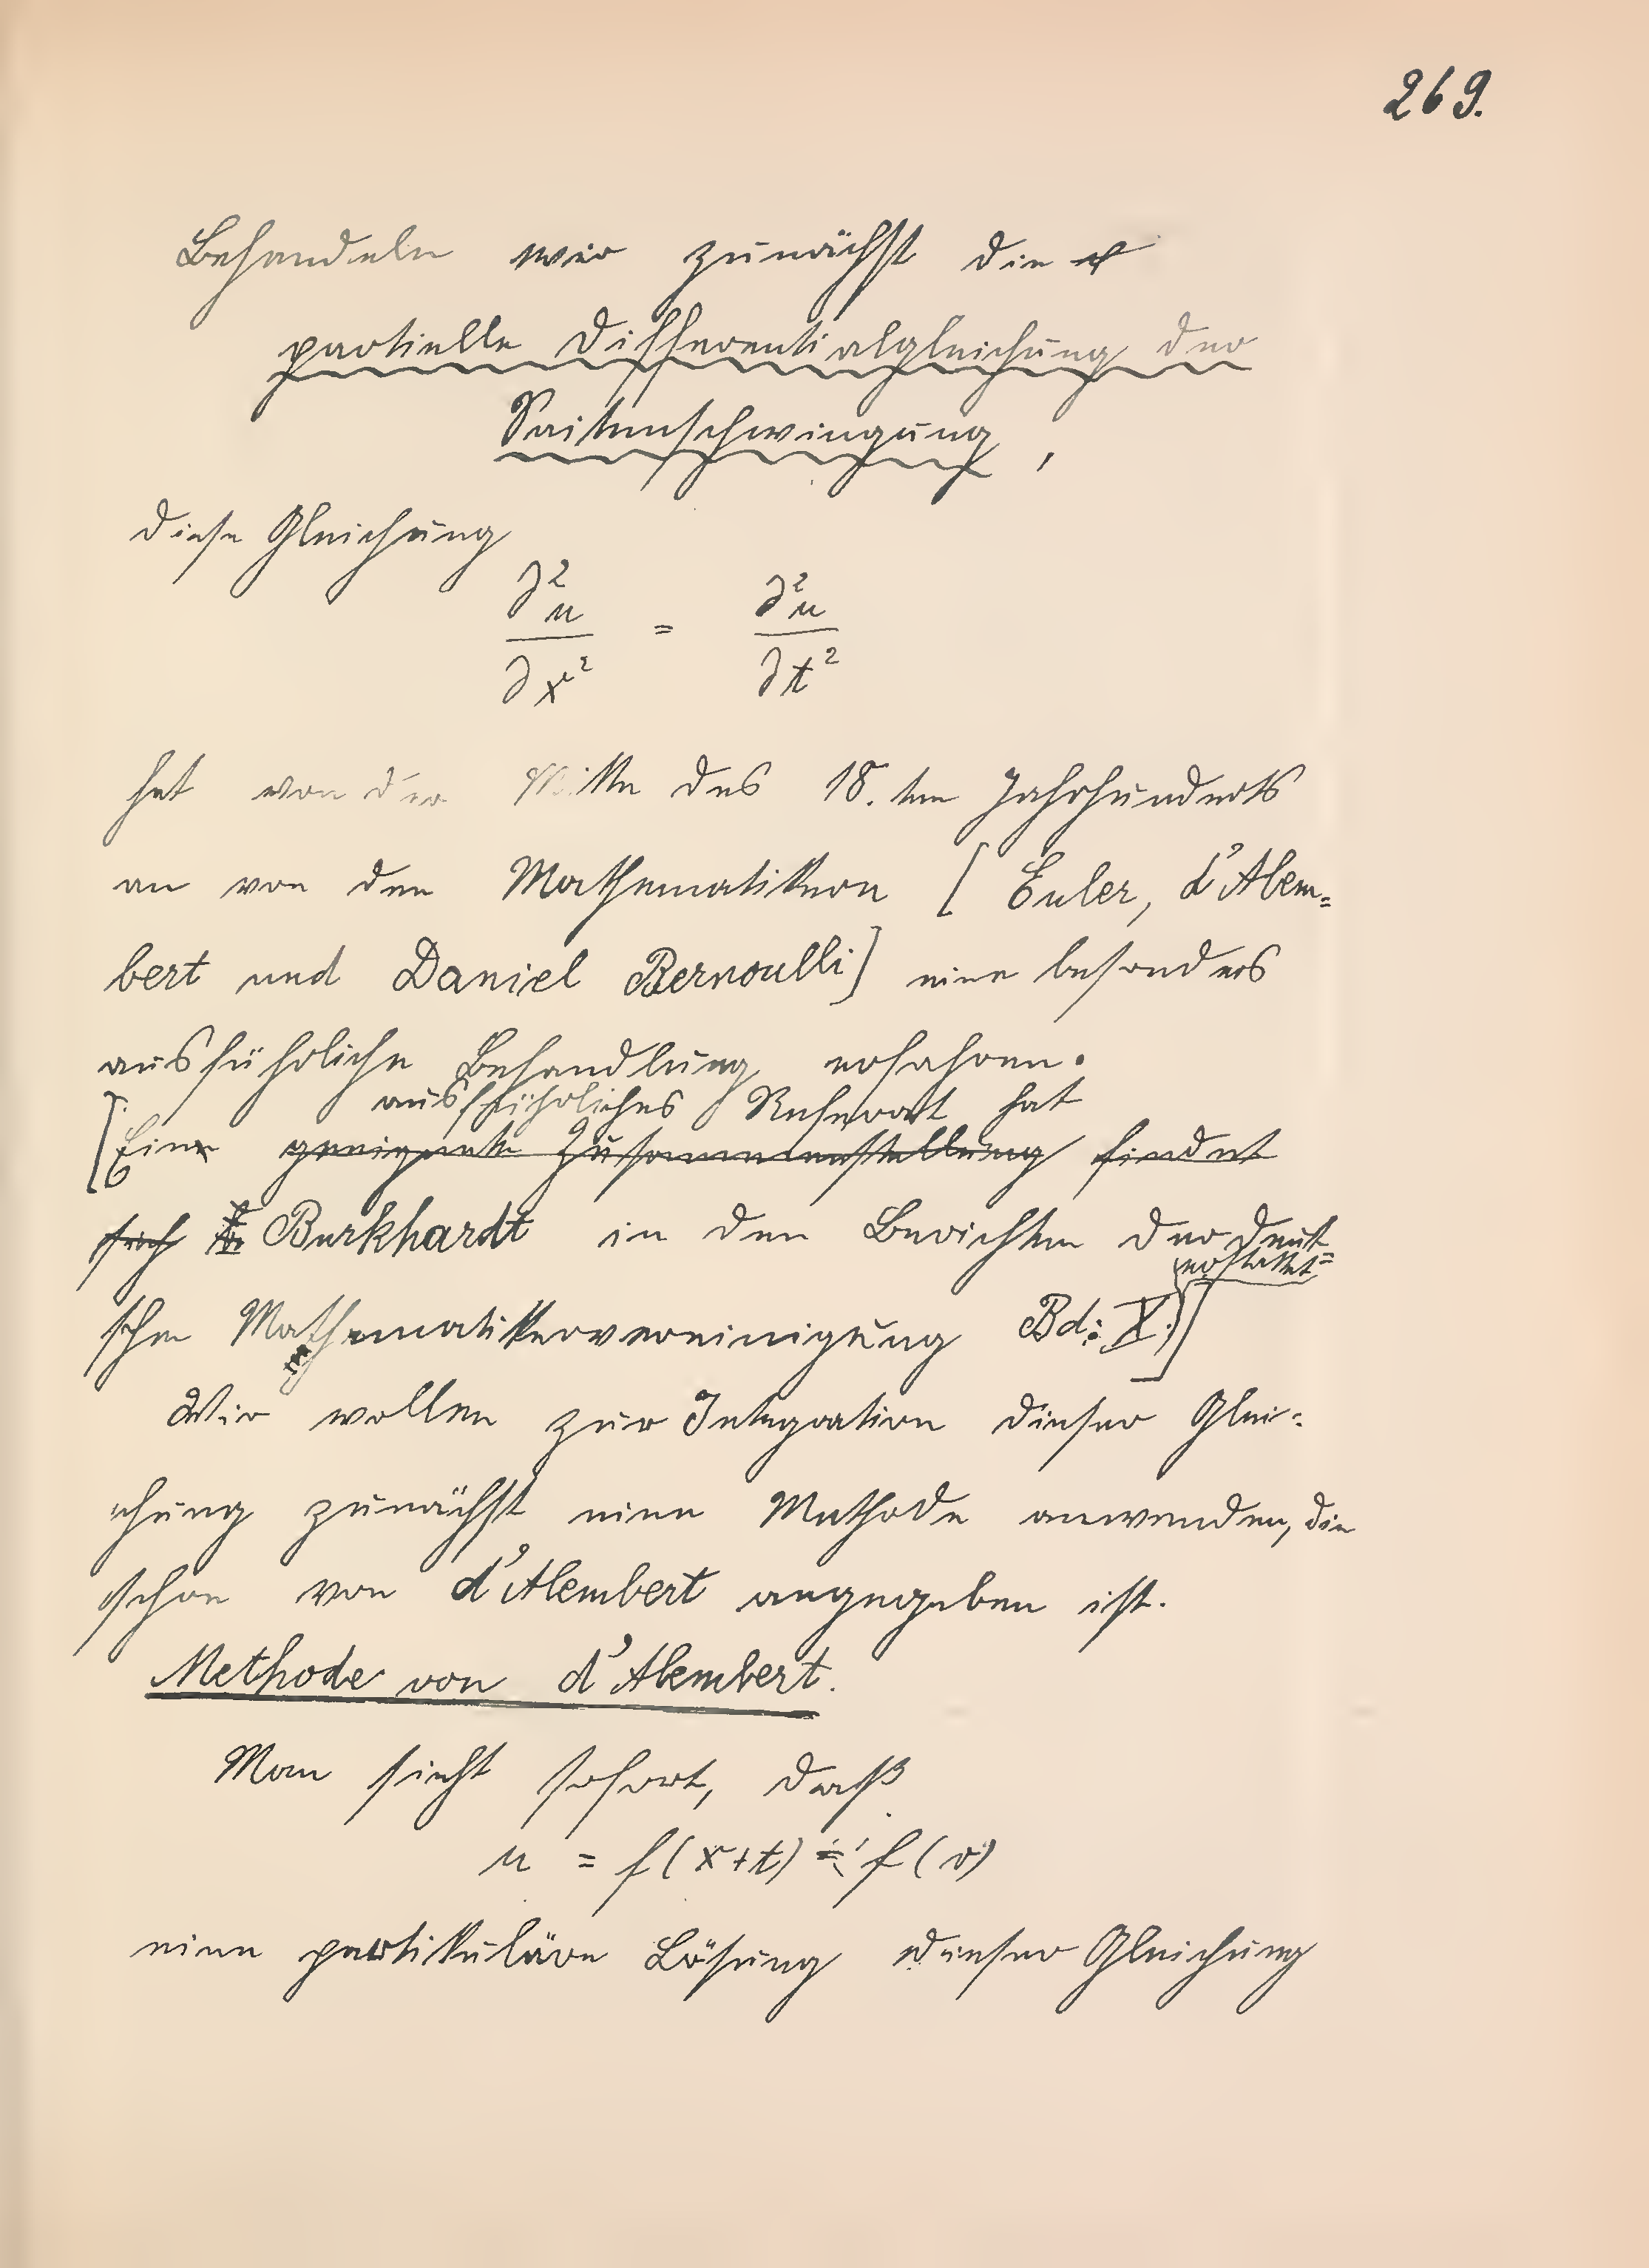 269.
Behandeln wir zunächst die
partielle Differentialgleichung der
Saitenschwingung,
diese Gleichung
∂²u/∂x² = ∂²u/∂t²
hat von der Mitte des 18. ten Jahrhunderts
an von den Mathematikern [Euler, d'Alem=
bert und Daniel Bernoulli] eine besonders
ausführliche Behandlung erfahren.
ausführliches Referat hat
[Ein geeignete Zusammenstellung findet
sich Burkhardt in den Berichten der deut
erstattet=
schen Mathematikervereinigung Bd: X.)]
Wir wollen zur Integration dieser Glei=
chung zunächst eine Methode anwenden, die
schon von d'Alembert angegeben ist.
Methode von d'Alembert.
Man sieht sofort, daß
u = f(x+t) = f(v)
eine partikuläre Lösung dieser Gleichung